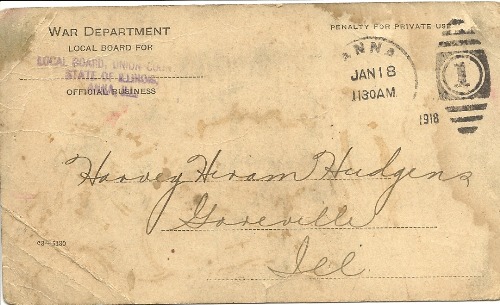 WAR DEPARTMENT
LOCAL BOARD FOR
LOCAL BOARD, UNION
STATE OF ILLINOIS,
ANNA
OFFICIAL BUSINESS
PENALTY FOR PRIVATE USE
ANNA
JAN 18
1130AM
1918
1
Harvey Hiram Hudgens
Goreville
Ill